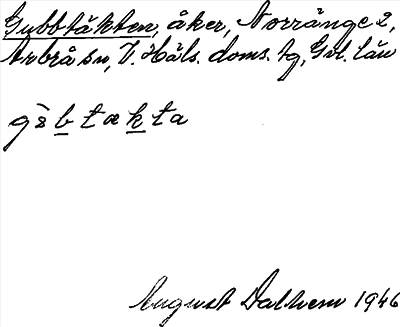 Gubbtäkten, åker, Norränge 2,
Arbrå sn, V. Häls. doms. tg, Gvl. län
gs̀btækta
August Dalhem 1946